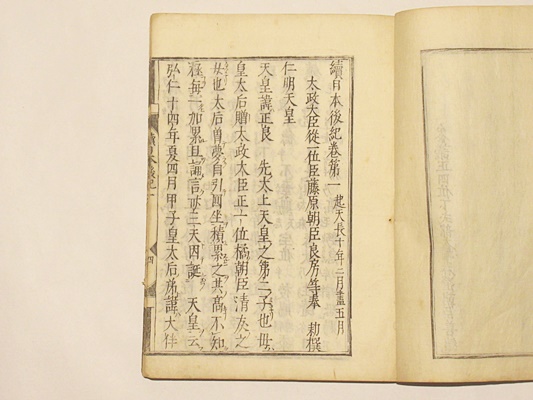 續日本後紀卷第一 起天長十年二月盡五月
太政大臣從一位臣藤原朝臣良房等奉 勅撰
仁明天皇
天皇諱正良 先太上天皇之第二子也母
皇太后贈太政大臣正一位橘朝臣清友之
女也太后曽夢自引圓坐積累之其高不知
極每一加累且誦言卅三天因誕 天皇云
弘仁十四年夏四月甲子皇太后㐮諱大伴
續日本後紀一
四